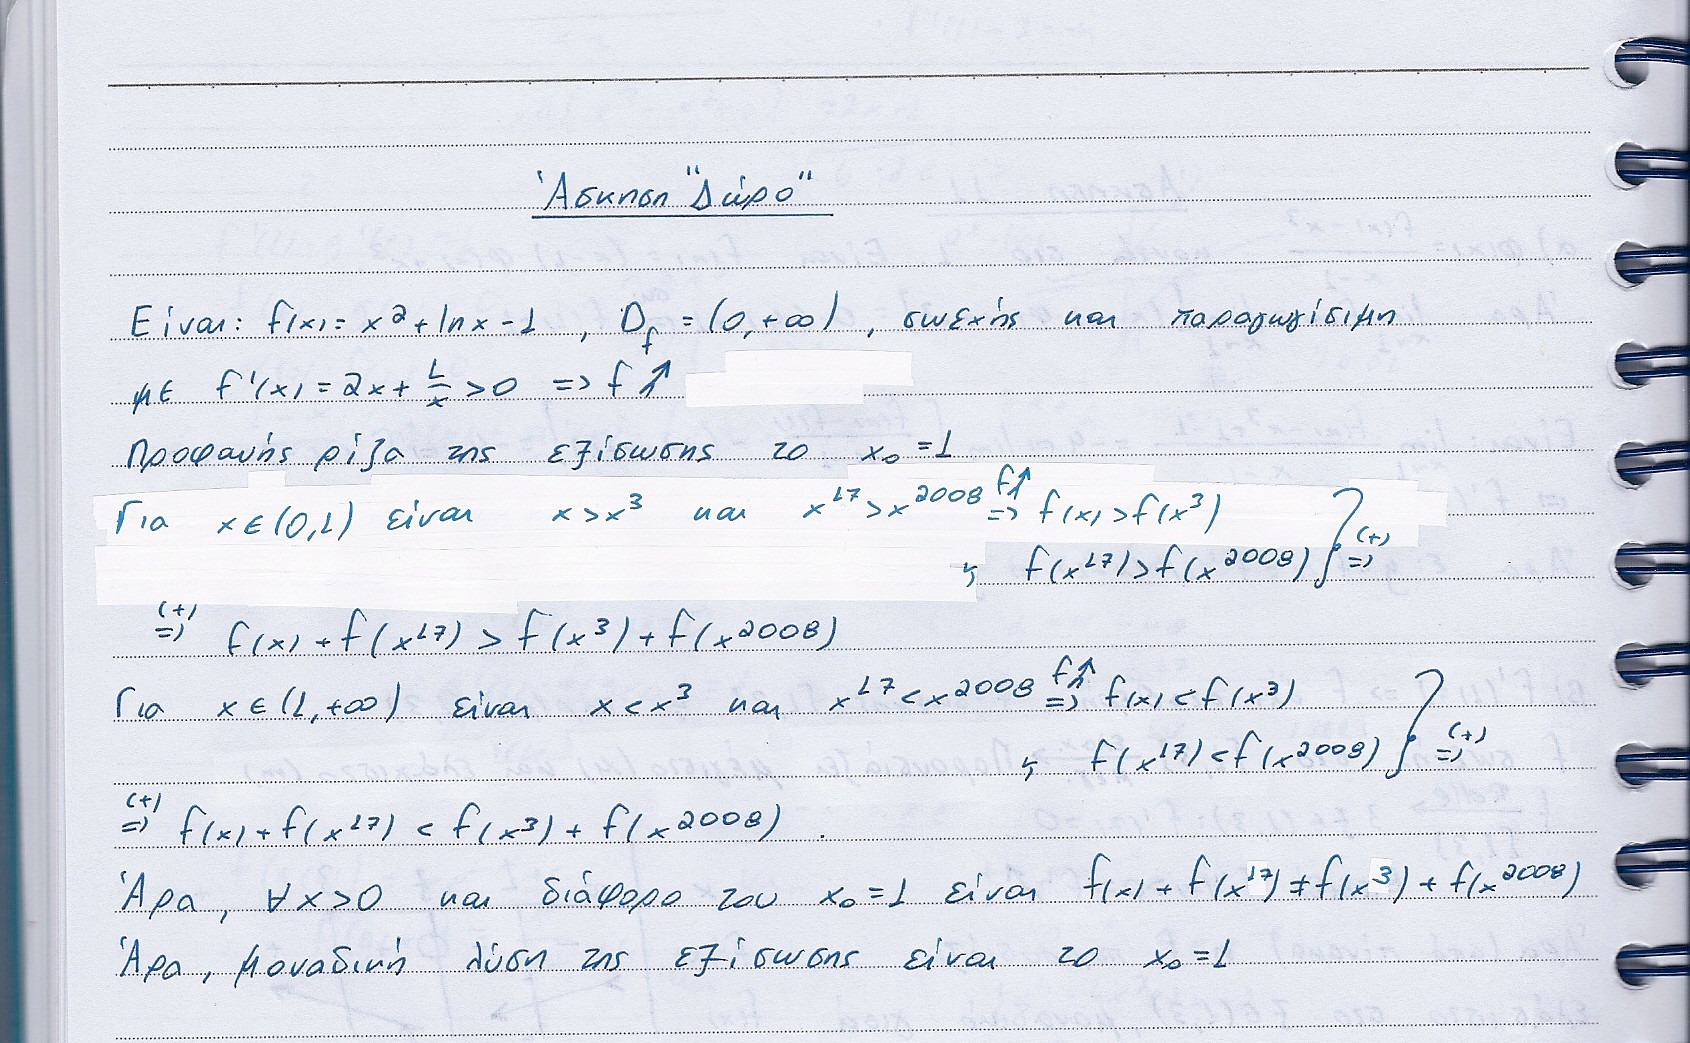 Άσκηση "Δώρο"
Είναι: f(x) = x² + lnx - 1 , D_f = (0, +∞) , συνεχής και παραγωγίσιμη
με f'(x) = 2x + 1/x > 0 => f↑
Προφανής ρίζα της εξίσωσης το x₀ = 1
Για x ∈ (0,1) είναι x > x³ και x¹⁷ > x²⁰⁰⁸ =>(f↑) f(x) > f(x³)
ϟ f(x¹⁷) > f(x²⁰⁰⁸) } (+) =>
(+) => f(x) + f(x¹⁷) > f(x³) + f(x²⁰⁰⁸)
Για x ∈ (1, +∞) είναι x < x³ και x¹⁷ < x²⁰⁰⁸ =>(f↑) f(x) < f(x³)
ϟ f(x¹⁷) < f(x²⁰⁰⁸) } (+) =>
(+) => f(x) + f(x¹⁷) < f(x³) + f(x²⁰⁰⁸) .
Άρα, ∀x > 0 και διάφορο του x₀ = 1 είναι f(x) + f(x¹⁷) ≠ f(x³) + f(x²⁰⁰⁸)
Άρα, μοναδική λύση της εξίσωσης είναι το x₀ = 1